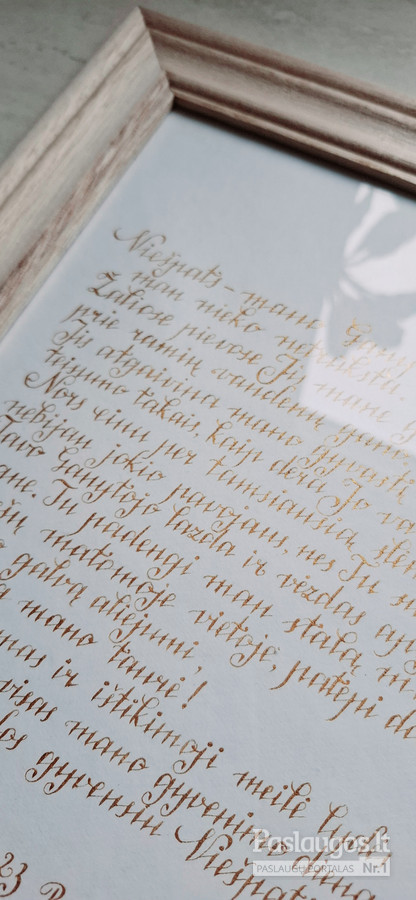 Viešpats – mano
man nieko netrūksta.
Žaliose pievose Jis mane
prie ramių vandenų
Jis atgaivina mano gyvastį
teisumo takais, kaip dera Jo
Nors einu per tamsiausią
nebijau jokio pavojaus, nes Tu
Tavo Ganytojo lazda ir vėzdas
Tu padengi man stalą
matomoje vietoje, patepi
galvą aliejumi,
mano taurė!
ir ištikimoji meilė
visas mano gyvenimo
gyvensiu Viešpaties
23
Paslaugos.lt
PASLAUGŲ PORTALAS Nr.1